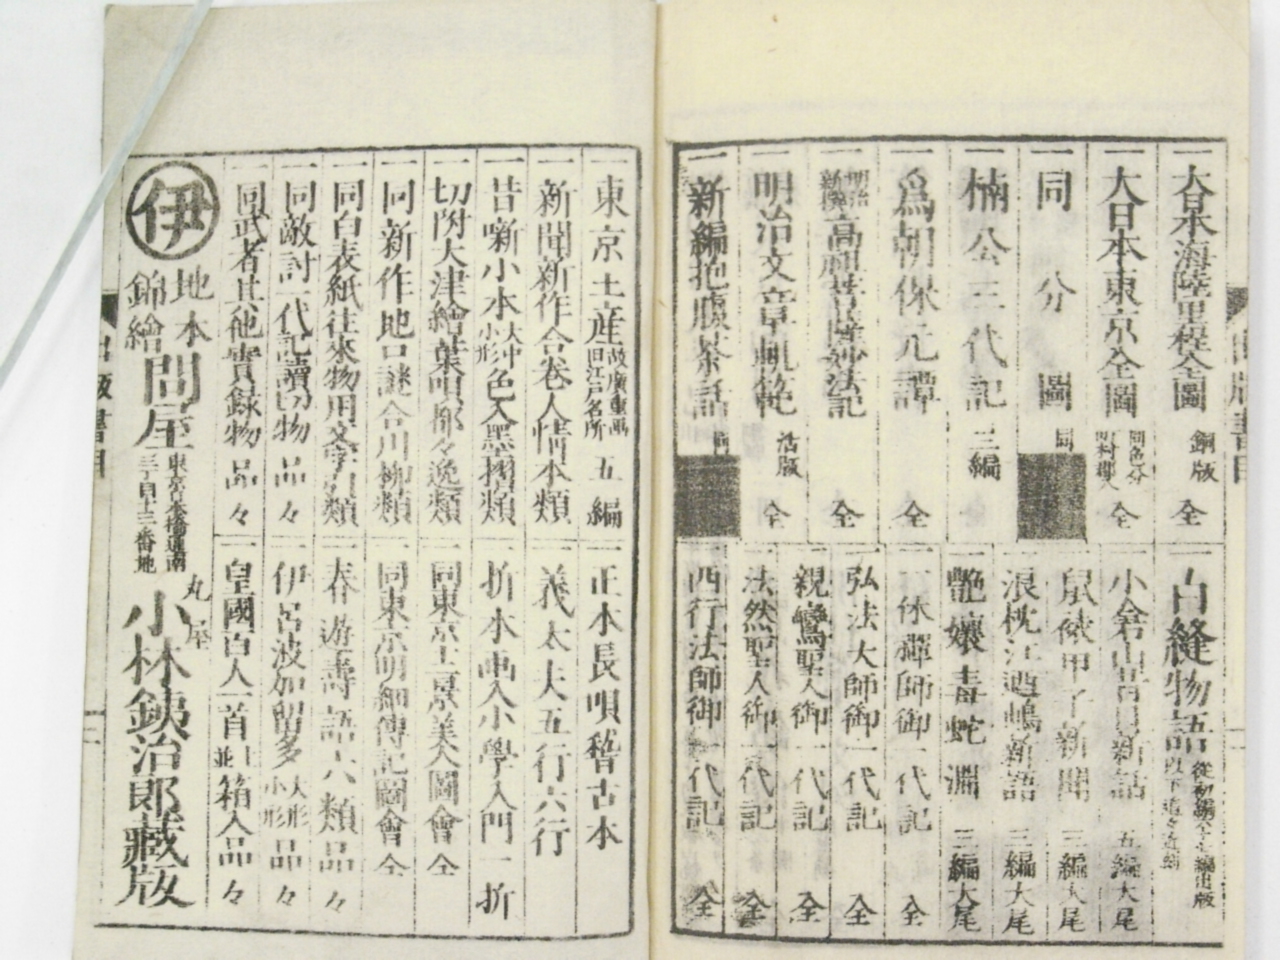 一大日本海陸里程全圖 銅版 全
一大日本東京全圖 全
一同分圖
一楠公三代記 三編
一爲朝保元譚 全
一明治新撰高祖世日隆妙法記 全
一明治文章軌範 活版 全
一新編抱腹茶話
一白縫物語
一小倉山昔日新話 五編大尾
一鼠俵甲子新聞 三編大尾
一浪枕江の嶋新語 三編大尾
一艶孃毒蛇淵 三編大尾
一一休禪師御一代記 全
一弘法大師御一代記 全
一親鸞聖人御一代記 全
一法然聖人御一代記 全
一西行法師御一代記 全
一東京土産 故廣重画 旧江戸名所 五編
一新聞新作合巻人情本類
一昔噺小本 大中小形 色入墨摺類
一切附大津繪葉唄都々逸類
一同新作地口謎合川柳類
一同白表紙往來物用文字引類
一同敵討一代記讀切物 品々
一同武者其他實録物 品々
一正本長唄稽古本
一義太夫五行六行
一折本画入小學入門一折
一同東京土景美人圖會 全
一同東京明細傳記圖會 全
一春遊壽語六類品々
一伊呂波加留多 大形小形 品々
一皇國百人一首 並上 箱入品々
伊
地本
錦繪
問屋
東京日本橋通南
三丁目十三番地
丸屋
小林銕治郎藏版
出版書目
出版書目